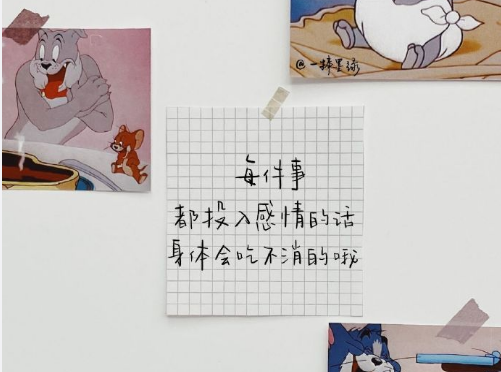 @一捧星球
每件事
都投入感情的话
身体会吃不消的哦